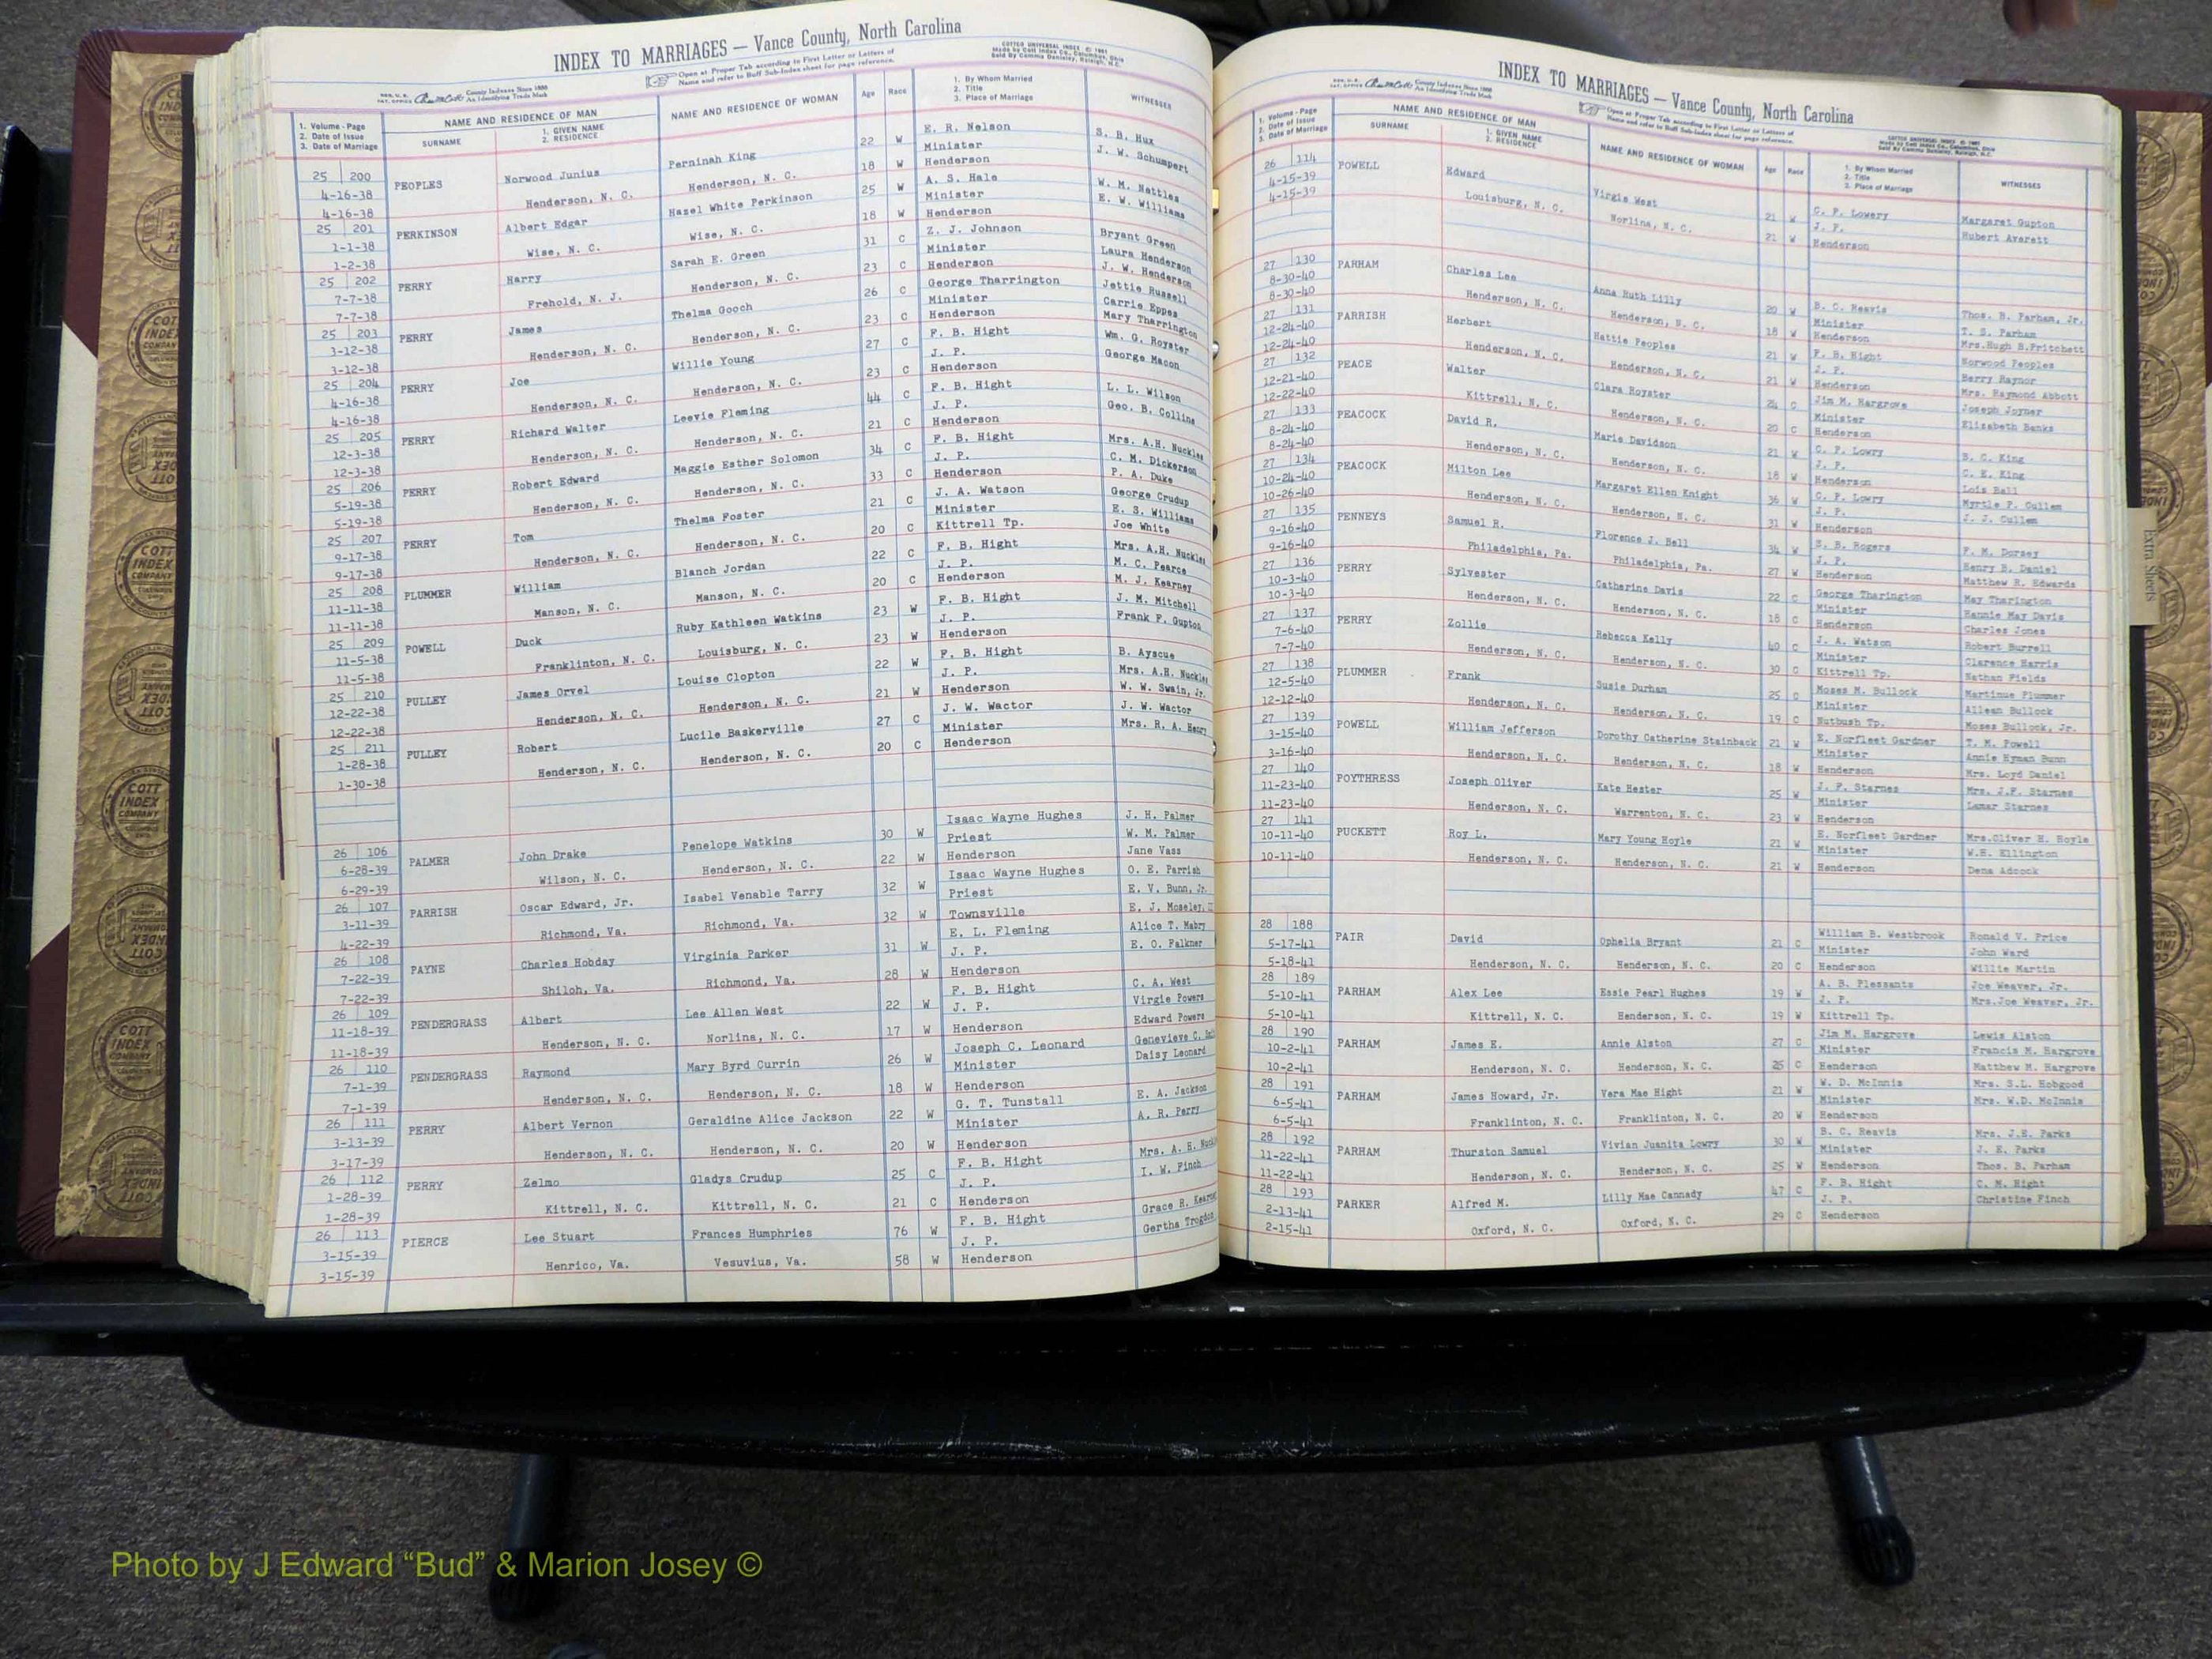 INDEX TO MARRIAGES — Vance County, North Carolina
Open at Proper Tab according to First Letter or Letters of
Name and refer to Buff Sub-Index sheet for page reference.
COTTCO UNIVERSAL INDEX © 1961
Made by Cott Index Co., Columbus, Ohio
County Indexes Since 1888
An Identifying Trade Mark
1. Volume - Page
2. Date of Issue
3. Date of Marriage
NAME AND RESIDENCE OF MAN
SURNAME
1. GIVEN NAME
2. RESIDENCE
NAME AND RESIDENCE OF WOMAN
Age Race
1. By Whom Married
2. Title
3. Place of Marriage
WITNESSES
25 200 PEOPLES Norwood Junius Perninah King 22 W E. R. Nelson S. B. Hux
4-16-38 Henderson, N. C. Henderson, N. C. 18 W Minister J. W. Schumpert
4-16-38 Henderson
25 201 PERKINSON Albert Edgar Hazel White Perkinson 25 W A. S. Hale W. M. Nattles
1-1-38 Wise, N. C. Wise, N. C. 18 W Minister E. W. Williams
1-2-38 Henderson
25 202 PERRY Harry Sarah E. Green 31 C Z. J. Johnson Bryant Green
7-7-38 Frehold, N. J. Henderson, N. C. 23 C Minister Laura Henderson
7-7-38 Henderson J. W. Henderson
25 203 PERRY James Thelma Gooch 26 C George Tharrington Jettie Russell
3-12-38 Henderson, N. C. Henderson, N. C. 23 C Minister Carrie Eppes
3-12-38 Henderson Mary Tharrington
25 204 PERRY Joe Willie Young 27 C F. B. Hight Wm. G. Royster
4-16-38 Henderson, N. C. Henderson, N. C. 23 C J. P. George Macon
4-16-38 Henderson
25 205 PERRY Richard Walter Leevie Fleming 44 C F. B. Hight L. L. Wilson
12-3-38 Henderson, N. C. Henderson, N. C. 21 C J. P. Geo. B. Collins
12-3-38 Henderson
25 206 PERRY Robert Edward Maggie Esther Solomon 34 C F. B. Hight Mrs. A.H. Nuckles
5-19-38 Henderson, N. C. Henderson, N. C. 33 C J. P. C. M. Dickerson
5-19-38 Henderson P. A. Duke
25 207 PERRY Tom Thelma Foster 21 C J. A. Watson George Crudup
9-17-38 Henderson, N. C. Henderson, N. C. 20 C Minister E. S. Williams
9-17-38 Kittrell Tp. Joe White
25 208 PLUMMER William Blanch Jordan 22 C F. B. Hight Mrs. A.H. Nuckles
11-11-38 Manson, N. C. Manson, N. C. 20 C J. P. M. C. Pearce
11-11-38 Henderson M. J. Kearney
25 209 POWELL Duck Ruby Kathleen Watkins 23 W F. B. Hight J. M. Mitchell
11-5-38 Franklinton, N. C. Louisburg, N. C. 23 W J. P. Frank F. Gupton
11-5-38 Henderson
25 210 PULLEY James Orvel Louise Clopton 22 W F. B. Hight B. Ayscue
12-22-38 Henderson, N. C. Henderson, N. C. 21 W J. P. Mrs. A.H. Nuckles
12-22-38 Henderson W. W. Swain, Jr.
25 211 PULLEY Robert Lucile Baskerville 27 C J. W. Wactor J. W. Wactor
1-28-38 Henderson, N. C. Henderson, N. C. 20 C Minister Mrs. R. A. Henry
1-30-38 Henderson
26 106 PALMER John Drake Penelope Watkins 30 W Isaac Wayne Hughes J. H. Palmer
6-28-39 Wilson, N. C. Henderson, N. C. 22 W Priest W. M. Palmer
6-29-39 Henderson Jane Vass
26 107 PARRISH Oscar Edward, Jr. Isabel Venable Tarry 32 W Isaac Wayne Hughes O. E. Parrish
3-11-39 Richmond, Va. Richmond, Va. 32 W Priest E. V. Bunn, Jr.
4-22-39 Townsville E. J. Moseley,
26 108 PAYNE Charles Hobday Virginia Parker 31 W E. L. Fleming Alice T. Mabry
7-22-39 Shiloh, Va. Richmond, Va. 28 W J. P. E. O. Falkner
7-22-39 Henderson
26 109 PENDERGRASS Albert Lee Allen West 22 W F. B. Hight C. A. West
11-18-39 Henderson, N. C. Norlina, N. C. 17 W J. P. Virgie Powers
11-18-39 Henderson Edward Powers
26 110 PENDERGRASS Raymond Mary Byrd Currin 26 W Joseph C. Leonard Genevieve C.
7-1-39 Henderson, N. C. Henderson, N. C. 18 W Minister Daisy Leonard
7-1-39 Henderson
26 111 PERRY Albert Vernon Geraldine Alice Jackson 22 W G. T. Tunstall E. A. Jackson
3-13-39 Henderson, N. C. Henderson, N. C. 20 W Minister A. R. Perry
3-17-39 Henderson
26 112 PERRY Zelmo Gladys Crudup 25 C F. B. Hight Mrs. A. H.
1-28-39 Kittrell, N. C. Kittrell, N. C. 21 C J. P. I. W. Finch
1-28-39 Henderson
26 113 PIERCE Lee Stuart Frances Humphries 76 W F. B. Hight Grace R.
3-15-39 Henrico, Va. Vesuvius, Va. 58 W J. P. Gertha Trogdon
3-15-39 Henderson
INDEX TO MARRIAGES — Vance County, North Carolina
Open at Proper Tab according to First Letter or Letters of
Name and refer to Buff Sub-Index sheet for page reference.
1. Volume - Page
2. Date of Issue
3. Date of Marriage
NAME AND RESIDENCE OF MAN
SURNAME
1. GIVEN NAME
2. RESIDENCE
NAME AND RESIDENCE OF WOMAN
Age Race
1. By Whom Married
2. Title
3. Place of Marriage
WITNESSES
26 114 POWELL Edward Virgie West 21 W C. P. Lowery Margaret Gupton
4-15-39 Louisburg, N. C. Norlina, N. C. 21 W J. P. Hubert Averett
4-15-39 Henderson
27 130 PARHAM Charles Lee Anna Ruth Lilly 20 W B. C. Reavis Thos. B. Parham, Jr.
8-30-40 Henderson, N. C. Henderson, N. C. 18 W Minister T. S. Parham
8-30-40 Henderson Mrs.Hugh B.Pritchett
27 131 PARRISH Herbert Hattie Peoples 21 W F. B. Hight Norwood Peoples
12-24-40 Henderson, N. C. Henderson, N. C. 21 W J. P. Berry Raynor
12-24-40 Henderson Mrs. Raymond Abbott
27 132 PEACE Walter Clara Royster 24 C Jim M. Hargrove Joseph Joyner
12-21-40 Kittrell, N. C. Henderson, N. C. 20 C Minister Elizabeth Banks
12-22-40 Henderson
27 133 PEACOCK David R. Marie Davidson 21 W C. P. Lowry B. C. King
8-24-40 Henderson, N. C. Henderson, N. C. 18 W J. P. C. E. King
8-24-40 Henderson Lois Ball
27 134 PEACOCK Milton Lee Margaret Ellen Knight 36 W C. P. Lowry Myrtle P. Cullem
10-24-40 Henderson, N. C. Henderson, N. C. 31 W J. P. J. J. Cullem
10-26-40 Henderson
27 135 PENNEYS Samuel R. Florence J. Bell 34 W S. B. Rogers F. M. Dorsey
9-16-40 Philadelphia, Pa. Philadelphia, Pa. 27 W J. P. Henry B. Daniel
9-16-40 Henderson Matthew R. Edwards
27 136 PERRY Sylvester Catherine Davis 22 C George Tharington May Tharington
10-3-40 Henderson, N. C. Henderson, N. C. 18 C Minister Hannie May Davis
10-3-40 Henderson Charles Jones
27 137 PERRY Zollie Rebecca Kelly 40 C J. A. Watson Robert Burrell
7-6-40 Henderson, N. C. Henderson, N. C. 30 C Minister Clarence Harris
7-7-40 Kittrell Tp. Nathan Fields
27 138 PLUMMER Frank Susie Durham 25 C Moses M. Bullock Martinue Plummer
12-5-40 Henderson, N. C. Henderson, N. C. 19 C Minister Allean Bullock
12-12-40 Nutbush Tp. Moses Bullock, Jr.
27 139 POWELL William Jefferson Dorothy Catherine Stainback 21 W E. Norfleet Gardner T. M. Powell
3-15-40 Henderson, N. C. Henderson, N. C. 18 W Minister Annie Hyman Bunn
3-16-40 Henderson Mrs. Loyd Daniel
27 140 POYTHRESS Joseph Oliver Kate Hester 25 W J. F. Starnes Mrs. J.F. Starnes
11-23-40 Henderson, N. C. Warrenton, N. C. 23 W Minister Lamar Starnes
11-23-40 Henderson
27 141 PUCKETT Roy L. Mary Young Hoyle 21 W E. Norfleet Gardner Mrs.Oliver H. Hoyle
10-11-40 Henderson, N. C. Henderson, N. C. 21 W Minister W.H. Ellington
10-11-40 Henderson Dena Adcock
28 188 PAIR David Ophelia Bryant 21 C William B. Westbrook Ronald V. Price
5-17-41 Henderson, N. C. Henderson, N. C. 20 C Minister John Ward
5-18-41 Henderson Willie Martin
28 189 PARHAM Alex Lee Essie Pearl Hughes 19 W A. B. Plessants Joe Weaver, Jr.
5-10-41 Kittrell, N. C. Henderson, N. C. 19 W J. P. Mrs.Joe Weaver, Jr.
5-10-41 Kittrell Tp.
28 190 PARHAM James E. Annie Alston 27 C Jim M. Hargrove Lewis Alston
10-2-41 Henderson, N. C. Henderson, N. C. 25 C Minister Francis M. Hargrove
10-2-41 Henderson Matthew M. Hargrove
28 191 PARHAM James Howard, Jr. Vera Mae Hight 21 W W. D. McInnis Mrs. S.L. Hobgood
6-5-41 Franklinton, N. C. Franklinton, N. C. 20 W Minister Mrs. W.D. McInnis
6-5-41 Henderson
28 192 PARHAM Thurston Samuel Vivian Juanita Lowry 30 W B. C. Reavis Mrs. J.E. Parks
11-22-41 Henderson, N. C. Henderson, N. C. 25 W Minister J. E. Parks
11-22-41 Henderson Thos. B. Parham
28 193 PARKER Alfred M. Lilly Mae Cannady 47 C F. B. Hight C. M. Hight
2-13-41 Oxford, N. C. Oxford, N. C. 29 C J. P. Christine Finch
2-15-41 Henderson
Extra Sheets
COTT
INDEX
COMPANY
Photo by J Edward “Bud” & Marion Josey ©